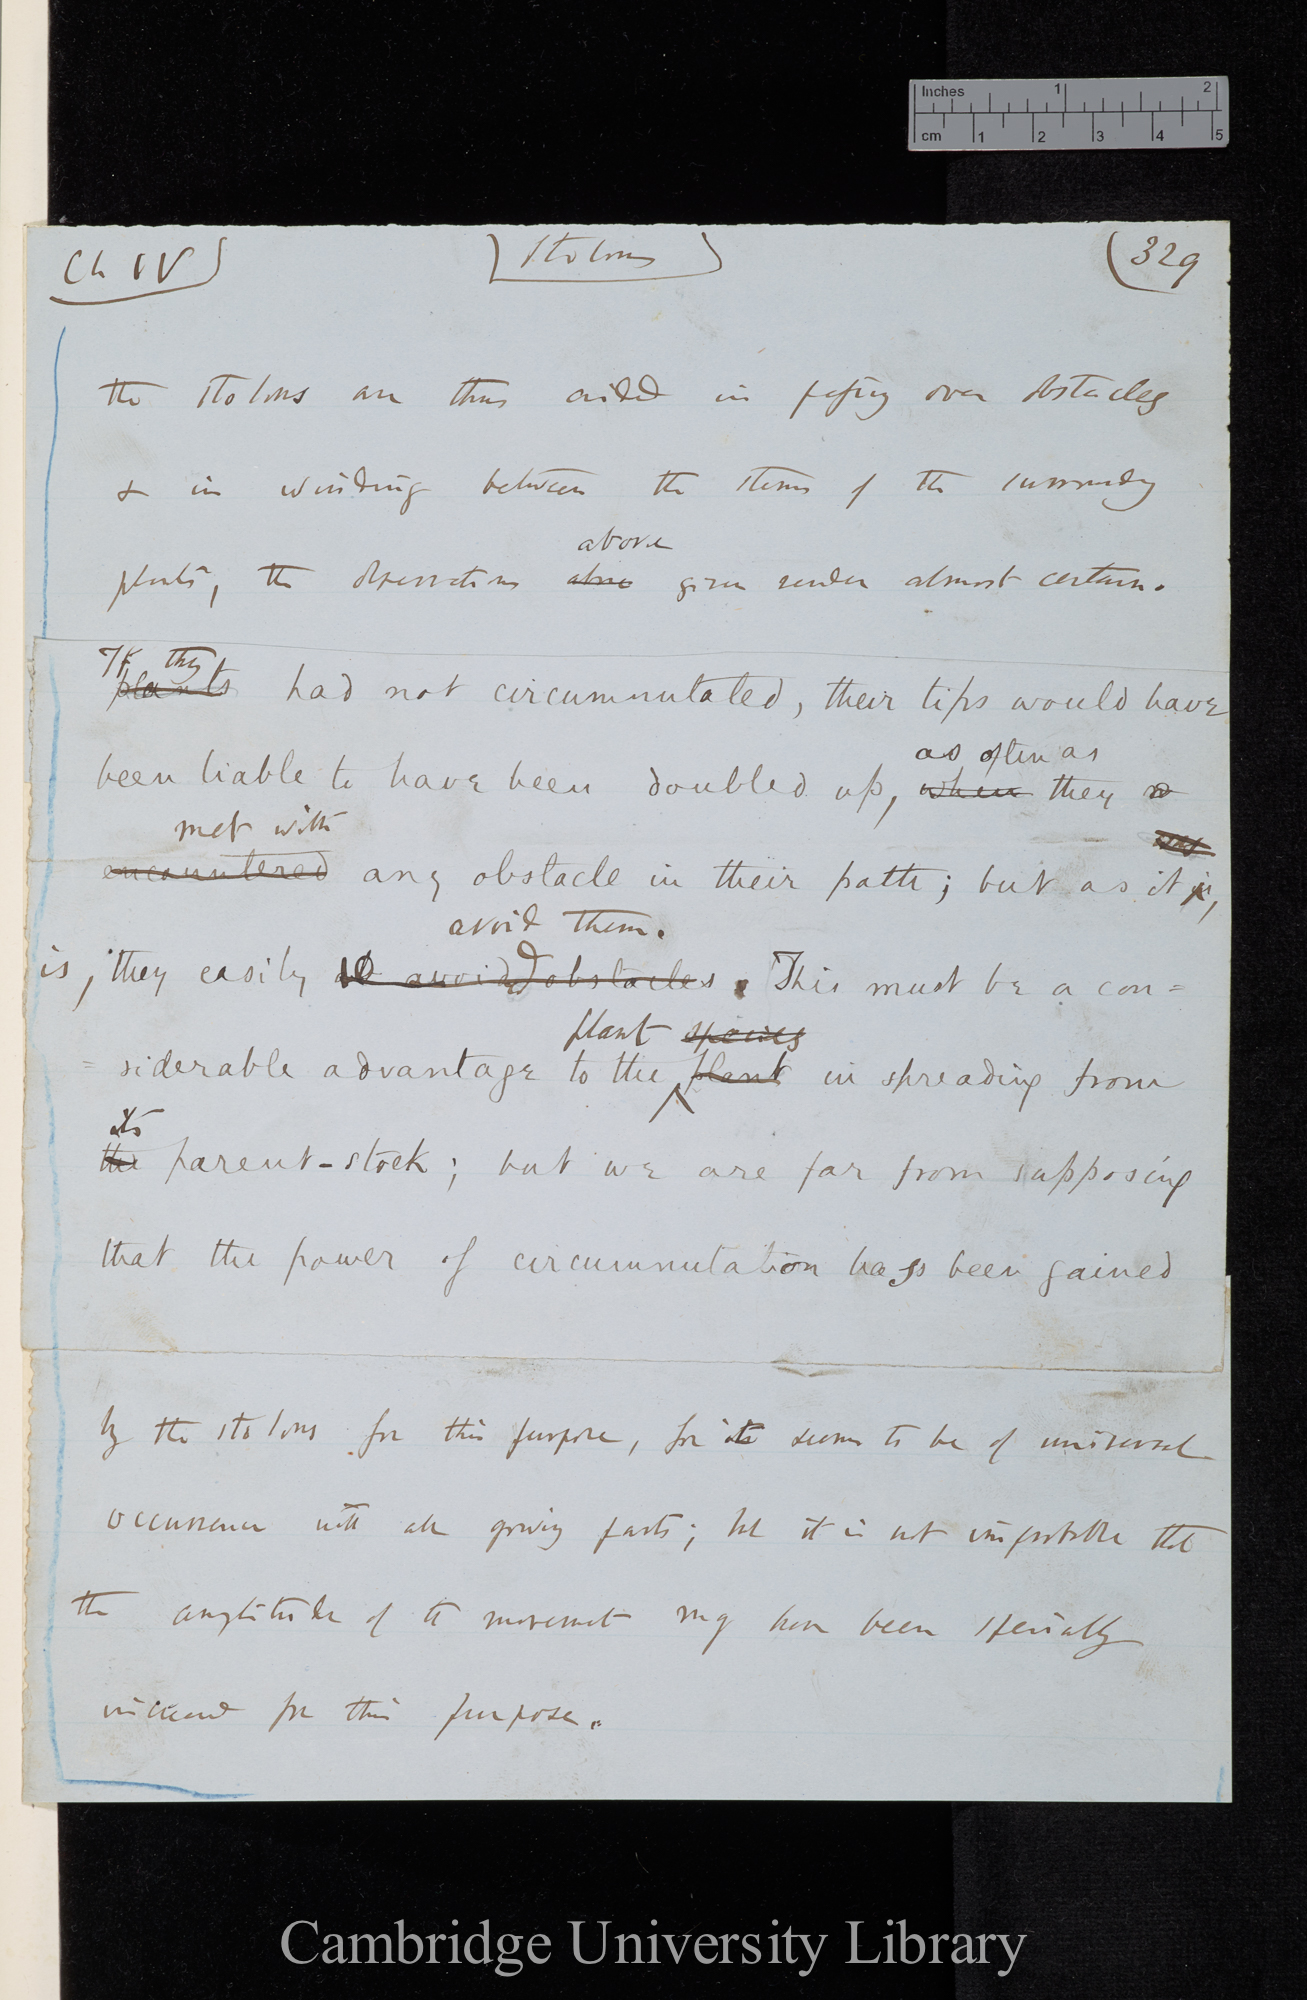 Inches 1 2
cm 1 2 3 4 5
Ch IV
Stolons
329
the stolons are thus aided in passing over obstacles
& in winding between the stems of the surrounding
above
plants, the observations above given render almost certain.
If they
plants had not circumnutated, their tips would have
as often as
been liable to have been doubled up, when they
met with
encountered any obstacle in their path; but as it
avoid them.
is, they easily avoided obstacles. This must be a con=
plant species
=siderable advantage to the plant in spreading from
its
the parent-stock; but we are far from supposing
that the power of circumnutation has been gained
by the stolons for this purpose, for it seems to be of universal
occurrence with all growing parts; but it is not improbable that
the amplitude of the movement may have been specially
increased for this purpose.
Cambridge University Library